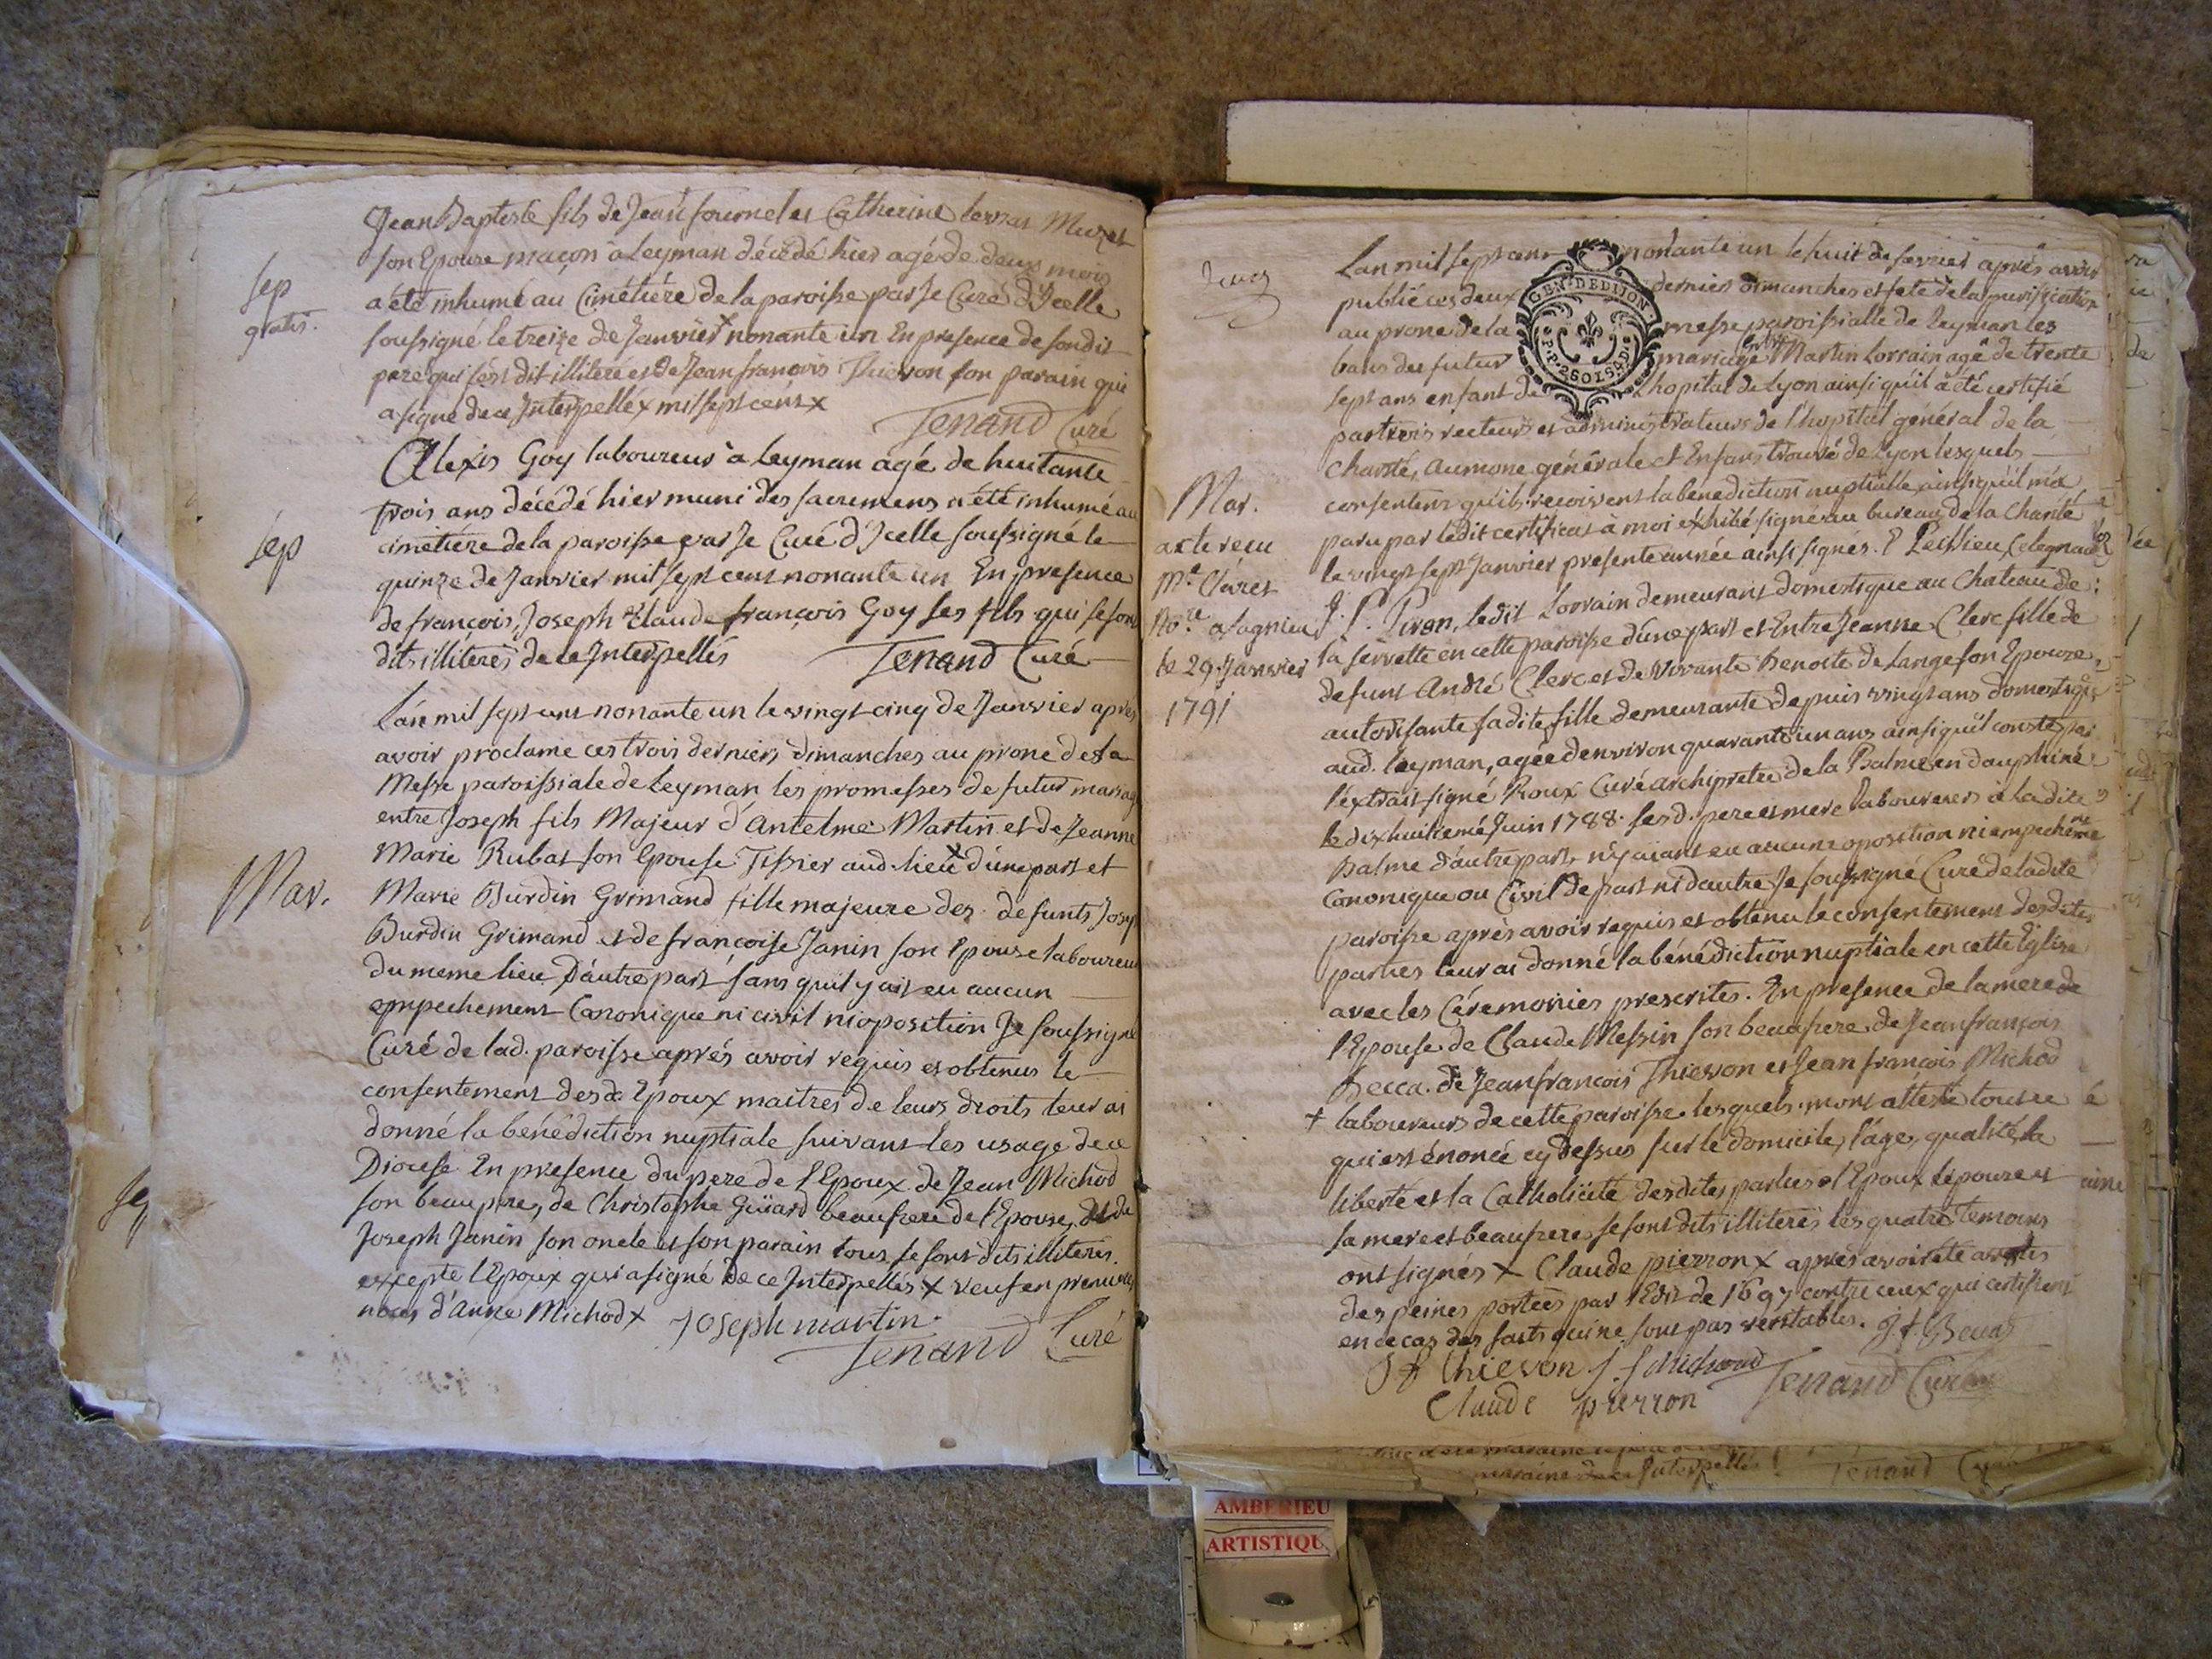 Jean Baptiste fils de Jean fournel et Catherine
son Epouse maçon a Leyman décédé hier agé de deux mois
Sep
gratis.
a été inhumé au Cimétiére de la paroisse par Je Curé d'Icelle
soussigné le treize de Janvier x nonante un En presence de sondit
pere qui s'est dit illiteré et de Jean francois Thievon son parain qui
a signé de ce Interpellé x mil sept cent x
Tenand Curé
Alexis Goy laboureur à Leyman agé de huitante
trois ans décédé hier muni des sacremens a été inhumé au
Sép
cimétiére de la paroisse par Je Curé d'Icelle soussigné le
quinze de Janvier mil sept cent nonante un En presence
de francois, Joseph et Claude françois Goy ses fils qui se sont
dits illiterés de ce Interpellés
Tenand Curé
L'an mil sept cent nonante un le vingt cinq de Janvier aprés
avoir proclamé ces trois derniers dimanches au prone de la
Messe paroissiale de Leyman les promesses de futur mariage
entre Joseph fils Majeur d'Antelme Martin et de Jeanne
Marie Rubat son Epouse Tissier aud. lieu x d'une part et
Mar.
Marie Burdin Grimand fille majeure des defunts Joseph
Burdin Grimand et de francoise Janin son Epouse laboureurs
du meme lieu D'autre part sans qu'il y ait eu aucun
empechement Canonique ni civil ni oposition Je soussigné
Curé de lad. paroisse aprés avoir requis et obtenus le
consentement desd. Epoux maitres de leurs droits leur ai
donné la bénédiction nuptiale suivant les usage de ce
Diocese En presence du pere de l'Epoux de Jean Michod
son beaupere, de Christophe Guiard beaufrere de l'Epouse, et de
Joseph Janin son oncle et son parain tous se sont dits illiterés.
excepté l'Epoux qui a signé de ce Interpellés x veuf en premieres
noces d'Anne Michod x
Joseph martin.
Tenand Curé
L'an mil sept cent nonante un le huit de fevrier aprés avoir
publié ces deux dernier dimanches et fete de la purification
au prone de la messe paroissialle de Leyman les
bans du futur mariage entre Martin Lorrain agé de trente
sept ans enfant de l'hopital de Lyon ainsi qu'il a été certifié
GEN. DE DIJON
par trois recteurs et administrateurs de l'hopital général de la
Charité, Aumone générale et Enfans trouvé de Lyon lesquels
consentent qu'ils recoivent la benediction nuptialle, ainsi qu'il m'a
paru par ledit certificat à moi exhibé signé au bureau de la Charité
le vingt sept Janvier presente année ainsi signés.
Mar.
acte recu
Mᵉ Claret
Noʳᵉ a Lagnieu
le 29. Janvier
1791
ledit Lorrain demeurant domestique au Chateau de
la servette en cette paroisse d'une part et Entre Jeanne Clerc fille de
defunt André Clerc et de vivante Benoite de Lange son Epouse,
autorisante sa dite fille demeurante depuis vingt ans domestique
aud. leyman, agée d'environ quarante un ans ainsi qu'il conste par
l'extrait signé Roux Curé archipretre de la Balme en dauphiné
le dix huitiemé Juin 1788. sesd. pere et mere laboureurs à la dite
Balme d'autre part, n'y aiant eu aucune oposition ni empechement
Canonique ou Civil de part ni d'autre Je soussigné Curé de la dite
paroisse aprés avoir requis et obtenu le consentement desdites
parties leur ai donné la bénédiction nuptiale en cette Eglise
avec les Cérémonies prescrites. En presence de la mere de
l'Epouse de Claude Messin son beaufrere, de Jean francois
Becca. de Jean francois Thievon et Jean francois Michod
+ laboureurs de cette paroisse lesquels m'ont attesté tout ce
qui est énoncé cy dessus sur le domicile, l'age, qualité, la
liberté et la Catholicité desdites parties l'Epoux l'epouse et
sa mere et beaufrere se sont dits illiterés les quatre temoins
ont signés x Claude pierron x aprés avoir été avertis
des peines portées par l'Edit de 1697 contre ceux qui certifient
en ce cas des faits qui ne sont pas véritables.
Thievon
J. f Michoud
Tenand Curé
Claude pierron
AMBERIEU
ARTISTIQU